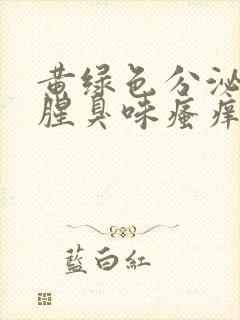 黄绿色分泌
腥臭味瘙痒
藍白紅